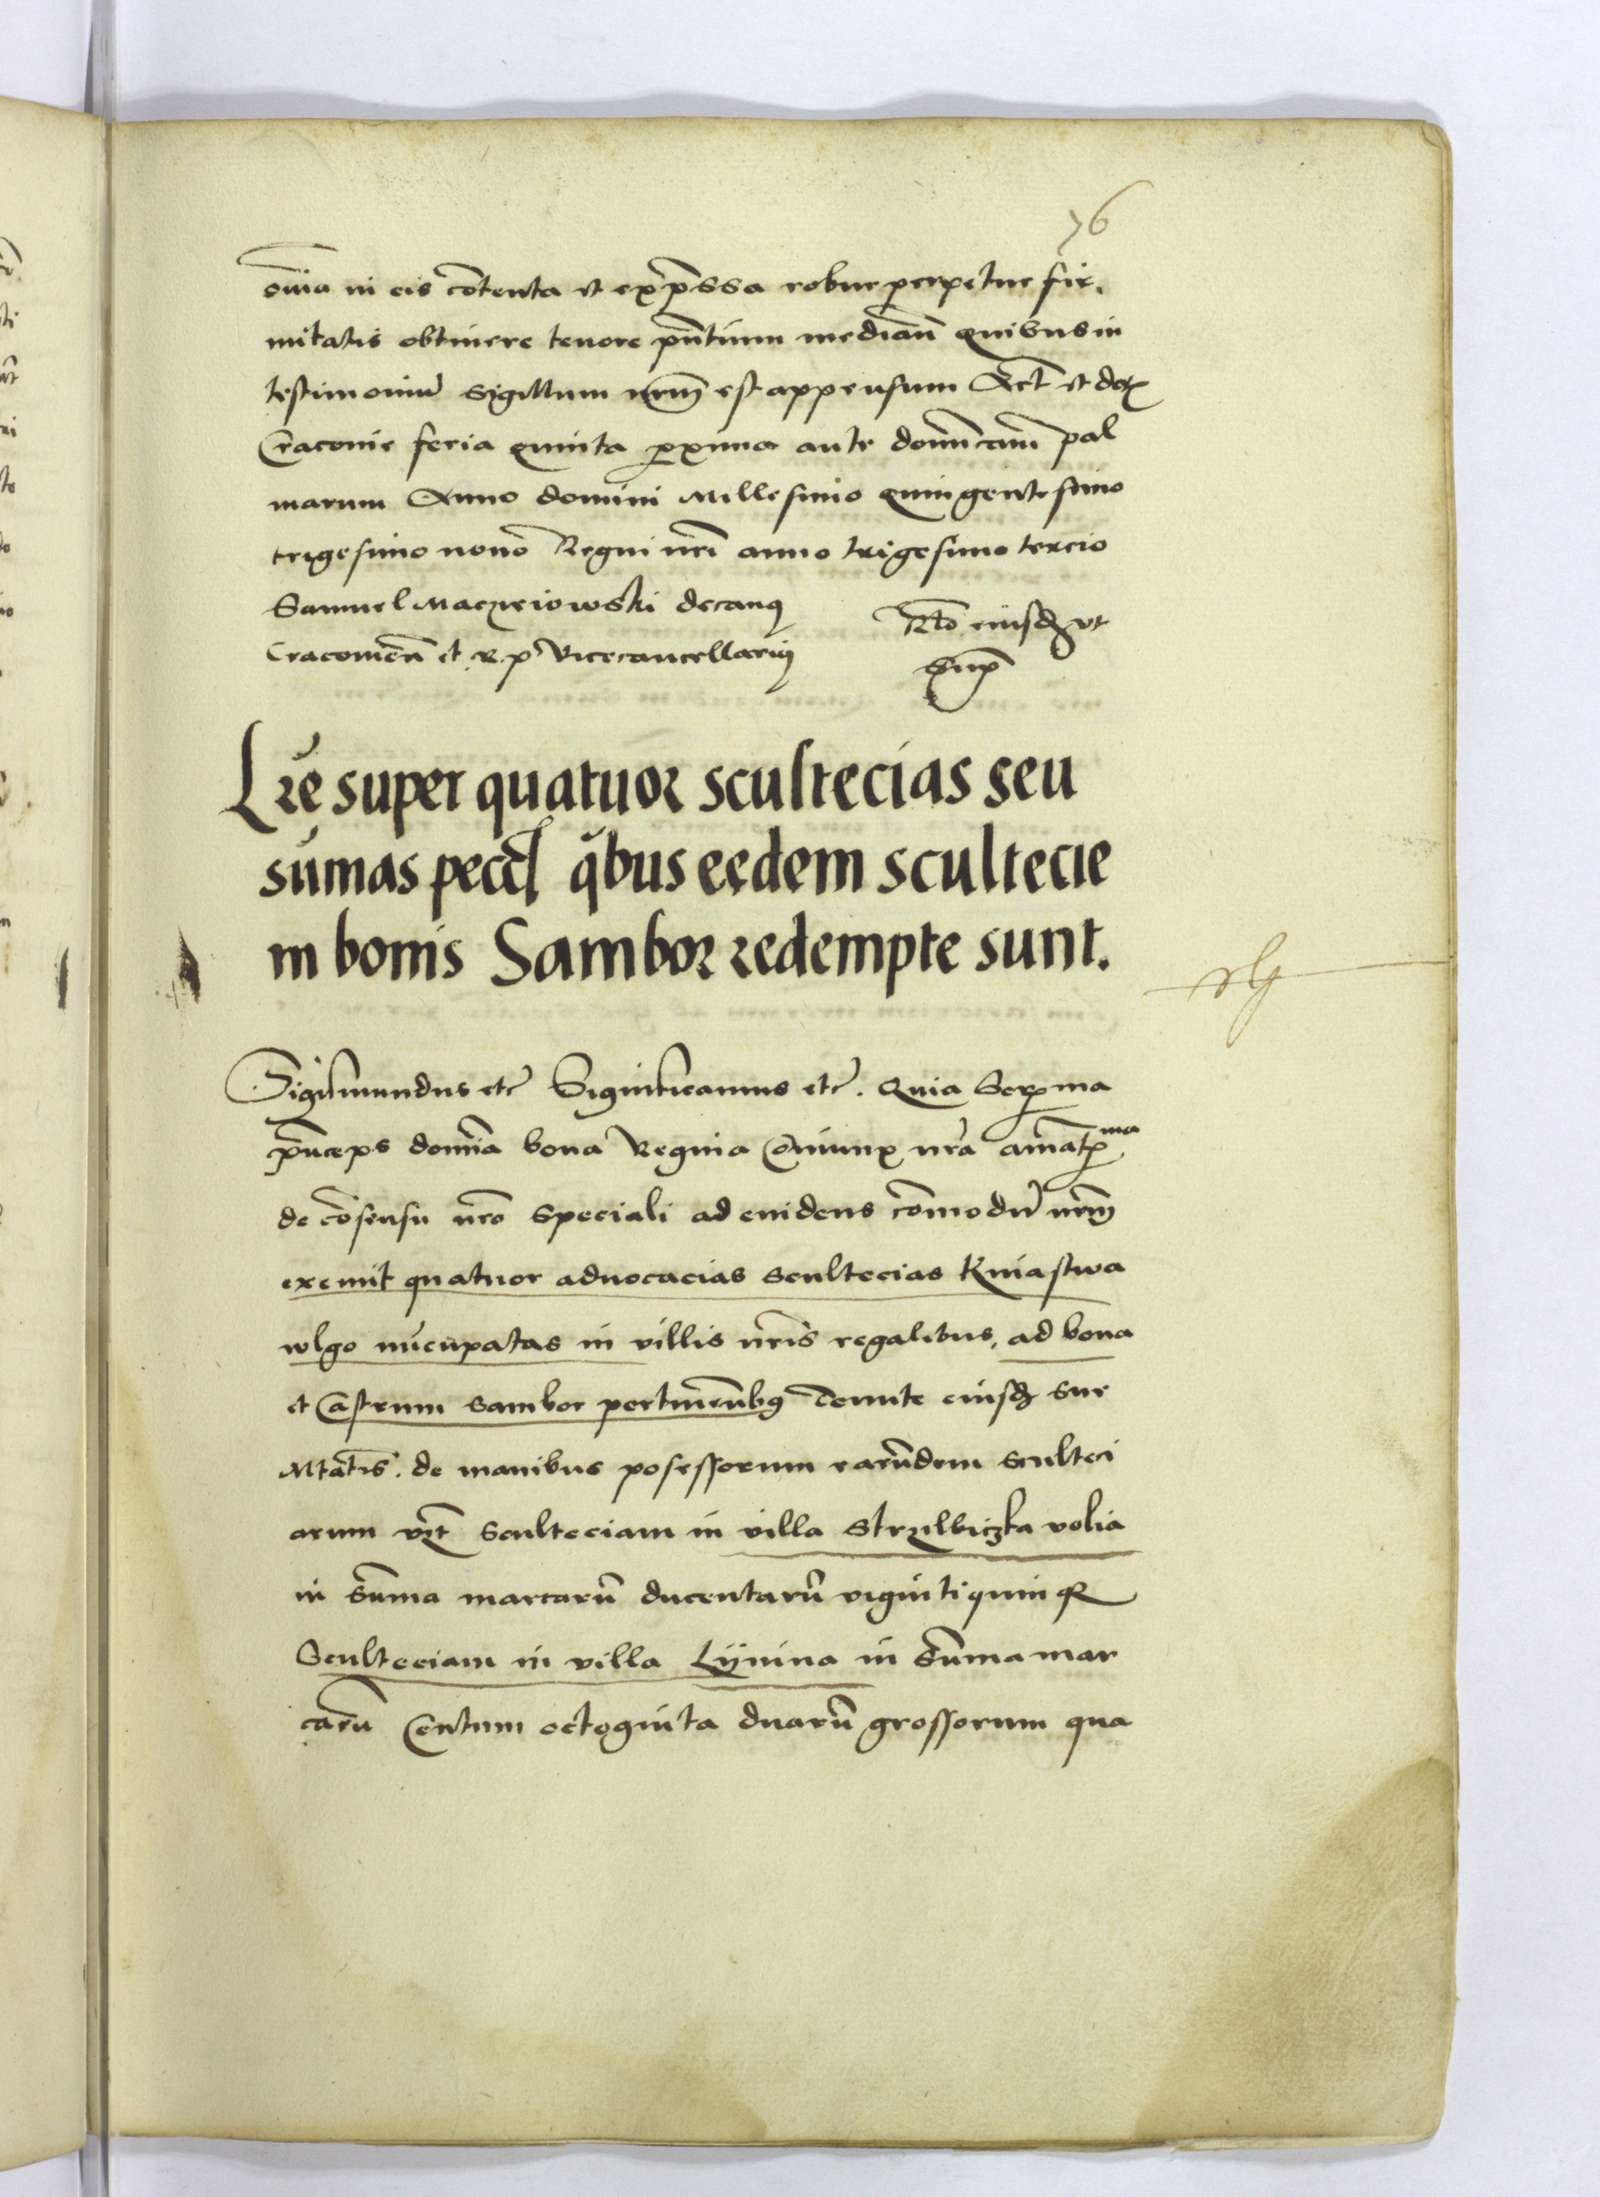 76
om̄ia in eis cōtenta et exp̄ssa robur perpetue fir,
mitatis obtinere tenore pn̄tium median̄ quibus in
testimoniū sigillum nr̄m est appensum Act̄ et dat
Cracovie feria quinta proxima ante domīcam pal
marum Anno domini Millesimo quingentesimo
trigesimo nono Regni nr̄i anno trigesimo tercio
Samuel Maczieiowski decanus
Cracovien̄ et R. p. Vicecancellarius
Rl̄o eiusdē ut
Supra
Lr̄e super quatuor scultecias seu
sūmas pecc̄ q̄bus eedem scultecie
in bonis Sambor redempte sunt.
Sigismundus etc̄ Significamus etc̄. Quia Ser̄ma
p̄nceps domīa bona Regina Cōniunx nr̄a amat̄ma
de cōsensu nr̄o speciali ad evidens cōmodū nr̄m
exemit quatuor advocacias scultecias Kniastwa
wlgo nūcupatas in villis nr̄is regalibus, ad bona
et Castrum Sambor pertinen̄bus Tenute eiusdē Sue
Mtatis. de manibus posessorum earūdem sculteci
arum vz̄t Sculteciam in villa Strzelbiczka volia
in Sūma marcarū ducentarū vigintiquinque
Scultecciam in villa Lÿnina in Sūma mar
carū Centum octoginta duarū grossorum qua